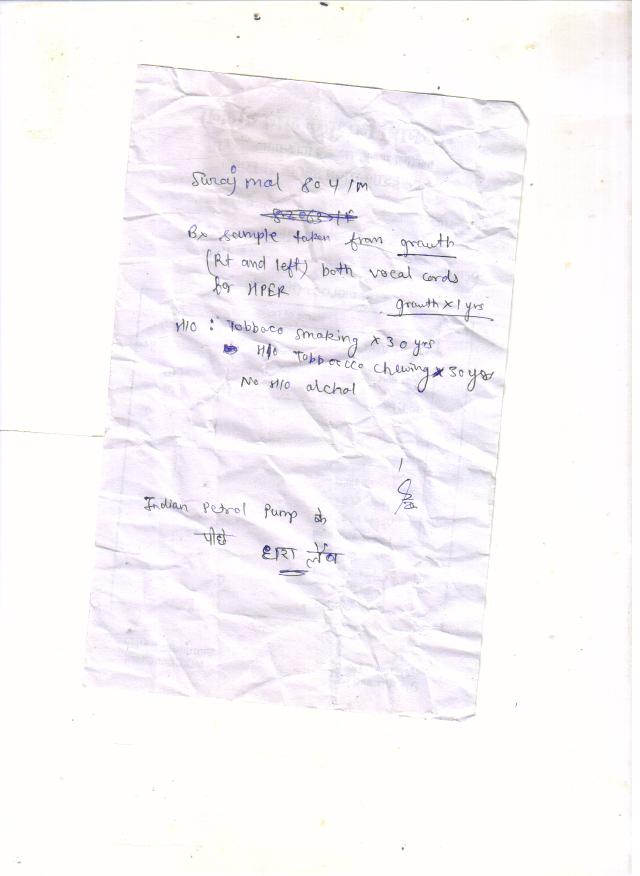 Suraj mal 80 Y/M
Bx sample taken from grauth
(Rt and left) both vocal cords
for HPER
grauth x 1 yrs
H/O : Tobbaco smaking x 30 yrs
H/O Tobbaccco chewing x 30 yrs
No H/O alchol
Indian Petrol Pump के
पीछे
धारा लैब